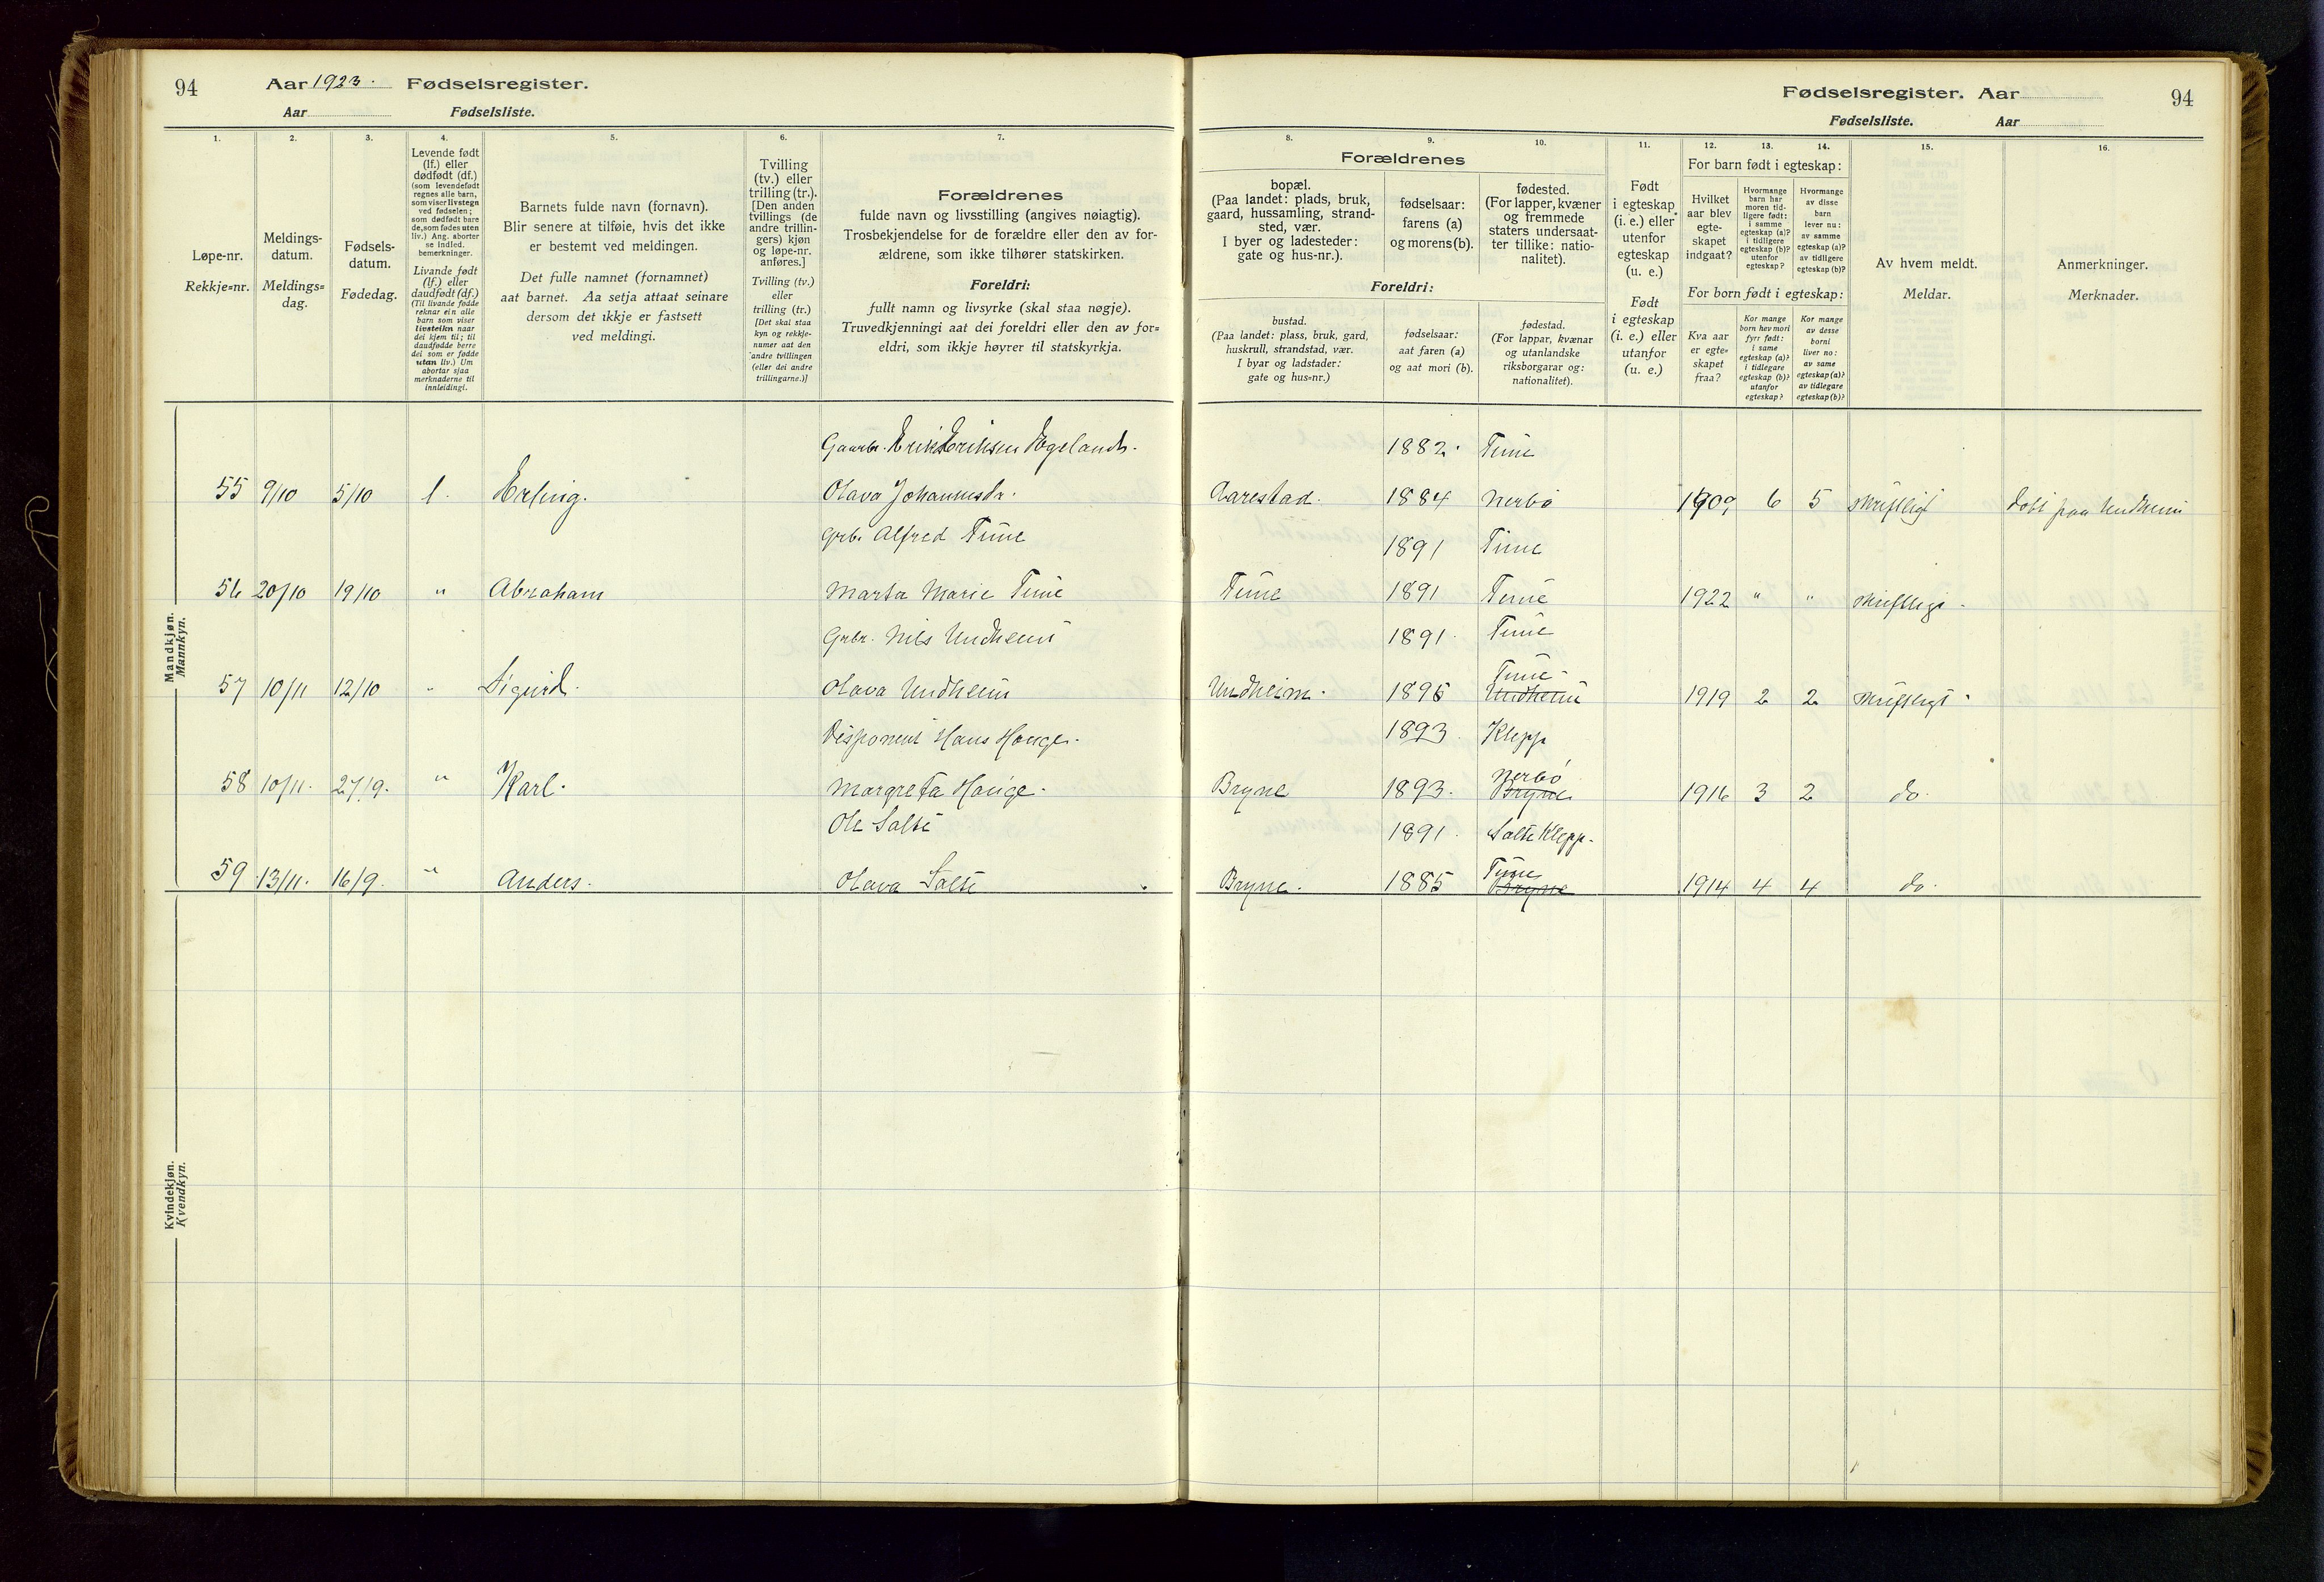 94
Aar 1923. Fødselsregister.
Aar Fødselsliste.
Fødselsregister. Aar
94
Fødselsliste. Aar
1. 2. 3. 4. 5. 6. 7. 8. 9. 10. 11. 12. 13. 14. 15. 16.
Løpe-nr.
Rekkje=nr.
Meldings-
datum.
Meldings=
dag.
Fødsels-
datum.
Fødedag.
Levende født
(lf.) eller
dødfødt (df.)
(som levendefødt
regnes alle barn,
som viser livstegn
ved fødselen;
som dødfødt bare
de, som fødes uten
liv.) Ang. aborter
se indled.
bemerkninger.
Livande født
(lf.) eller
daudfødt (df.)
(Til livande fødde
reknar ein alle
born som viser
livsteikn naar
dei kjem til; til
daudfødde berre
dei som er fødde
utan liv.) Um
abortar sjaa
merknaderne til
innleidingi.
Barnets fulde navn (fornavn).
Blir senere at tilføie, hvis det ikke
er bestemt ved meldingen.
Det fulle namnet (fornamnet)
aat barnet. Aa setja attaat seinare
dersom det ikkje er fastsett
ved meldingi.
Tvilling
(tv.) eller
trilling (tr.).
[Den anden
tvillings (de
andre trillin-
gers) kjøn
og løpe-nr.
anføres.]
Tvilling (tv.)
eller
trilling (tr.)
[Det skal staa
kyn og rekkje-
numer aat den
andre tvillingen
(eller dei andre
trillingarne.)]
Forældrenes
fulde navn og livsstilling (angives nøiagtig).
Trosbekjendelse for de forældre eller den av for-
ældrene, som ikke tilhører statskirken.
Foreldri:
fullt namn og livsyrke (skal staa nøgje).
Truvedkjenningi aat dei foreldri eller den av for=
eldri, som ikkje høyrer til statskyrkja.
Forældrenes
bopæl.
(Paa landet: plads, bruk,
gaard, hussamling, strand-
sted, vær.
I byer og ladesteder:
gate og hus-nr.).
fødselsaar:
farens (a)
og morens (b).
fødested.
(For lapper, kvæner
og fremmede
staters undersaat-
ter tillike: natio-
nalitet).
Foreldri:
bustad.
(Paa landet: plass, bruk, gard,
huskrull, strandstad, vær.
I byar og ladstader:
gate og hus-nr.)
fødselsaar:
aat faren (a)
og aat mori (b).
fødestad.
(For lappar, kvænar
og utanlandske
riksborgarar og:
nationalitet).
Født
i egteskap
(i. e.) eller
utenfor
egteskap
(u. e.)
Født
i egteskap
(i. e.) eller
utanfor
(u. e.)
For barn født i egteskap:
Hvilket
aar blev
egte-
skapet
indgaat?
Hvormange
barn har
moren tid-
ligere født:
i samme
egteskap (a)?
i tidligere
egteskap (b)?
utenfor
egteskap?
Hvormange
av disse
barn
lever nu:
av samme
egteskap (a)?
av tidligere
egteskap (b)?
For born født i egteskap:
Kva aar
er egte=
skapet
fraa?
Kor mange
born hev mori
fyrr født:
i same
egteskap (a)?
i tidlegare
egteskap (b)?
utanfor
egteskap?
Kor mange
av desse
borni
liver no:
av same
egteskap (a)?
av tidlegare
egteskap (b)?
Av hvem meldt.
Meldar.
Anmerkninger.
Merknader.
Mandkjøn.
Mannkyn.
Gaarbr. Erik Eriksen Egelands. 1882. Time
55 9/10 5/10 l. Erling. Olava Johannesdr. Aarestad. 1884 Nerbø 1909 6 5 skriftligt Døbt paa Undheim
Grb. Alfred Time 1891 Time
56 20/10 19/10 " Abraham Marta Marie Time Time 1891 Time 1922 " " skriftligt.
Grbr. Nils Undheim 1891. Time
57 10/11 12/10 " Sigurd. Olava Undheim Undheim. 1896 Time Undheim 1919 2 2 skriftligt.
Disponent Hans Hauge. 1893. Klepp
58 10/11. 27/9. " Karl. Margreta Hauge. Bryne 1893. Nerbø Bryne 1916 3 2 do.
Ole Salte 1891. Salte Klepp.
59 13/11. 16/9. " Anders. Olava Salte Bryne. 1885 Time Bryne 1914 4 4 do.
Kvindekjøn.
Kvendkyn.